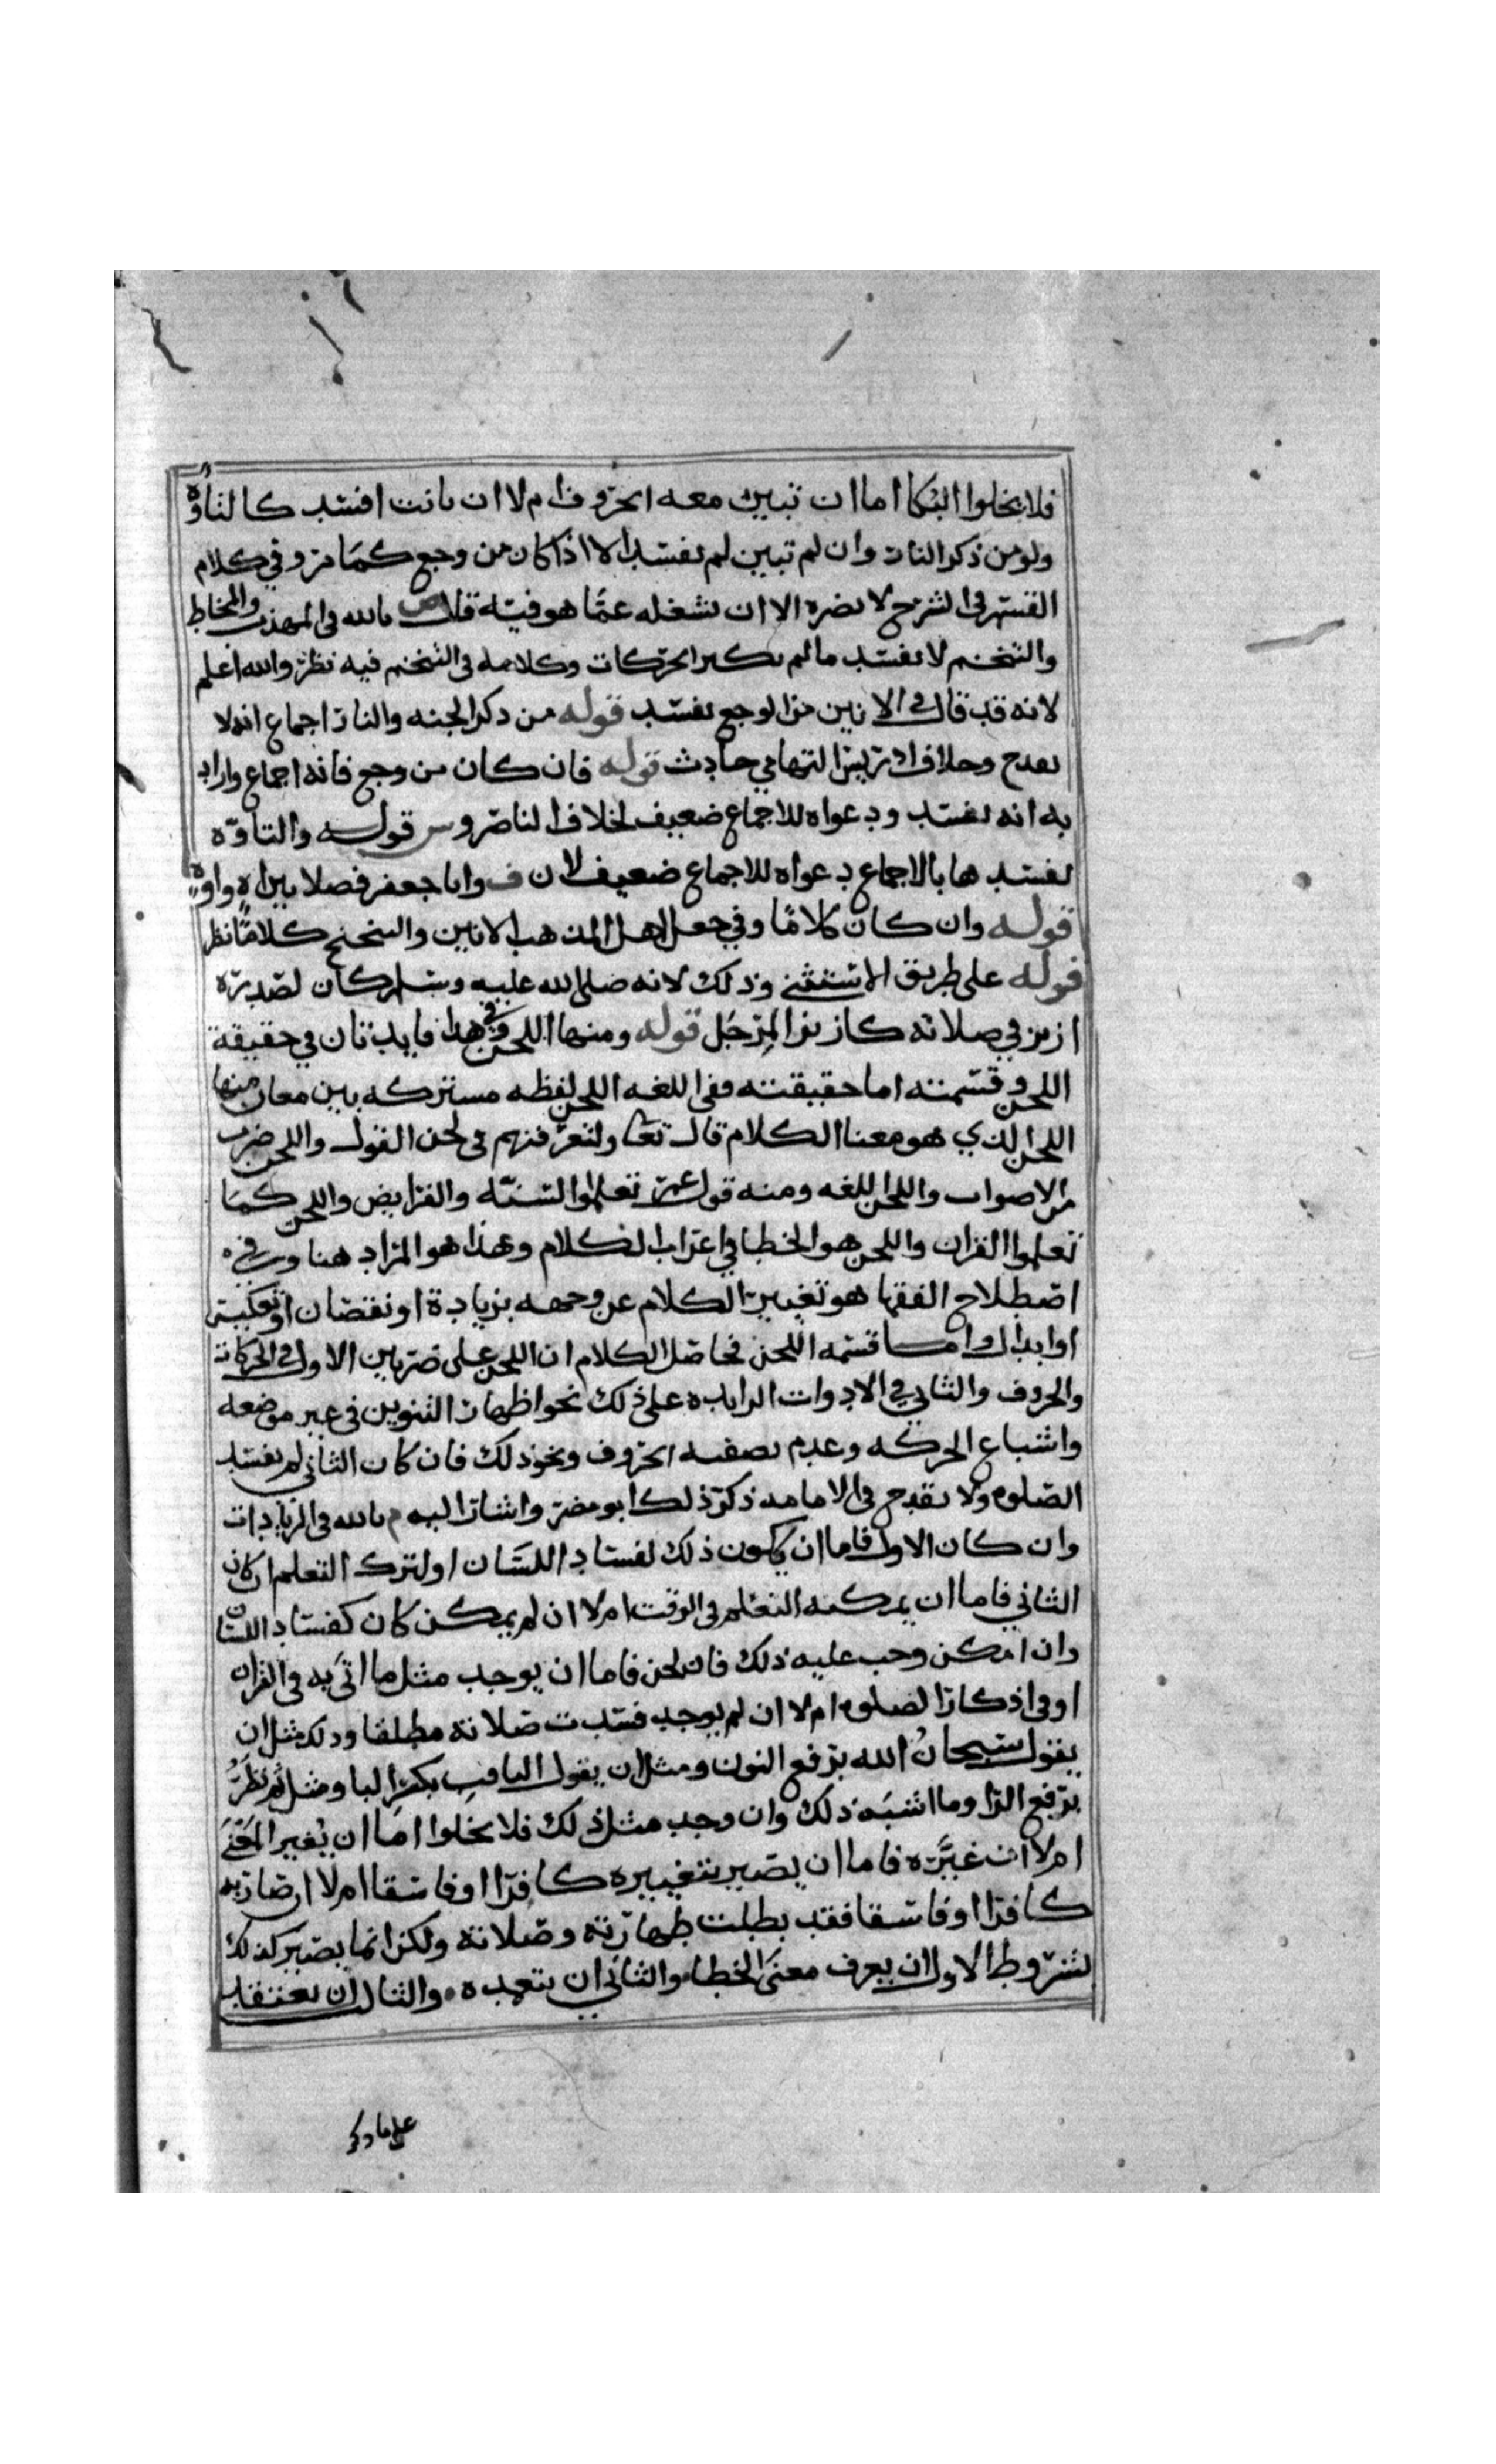 فلا يخلوا البكا اما ان تبين معه الحروف ام لا ان بانت افسد كالتاوه
ولو من ذكر النار وان لم تبين لم يفسد الا اذا كان من وجع كما مر وفي كلام
في الشرح لا يضره الا ان يشغله عما هو فيه قال بالله في المهذب والمخاط
والتنخم لا يفسد ما لم يكبر الحركات وكلامه في التنخم فيه نظر والله اعلم
لانه قد قال في الانين من الوجع يفسد قوله من ذكر الجنه والنار اجماع انه لا
يقدح وخلاف حادث قوله فان كان من وجع فانه اجماع واراد
به انه يفسد ودعواه للاجماع ضعيف لخلاف الناصر وس قوله والتاوه
يفسدها بالاجماع دعواه للاجماع ضعيف لان ف وابا جعفر فصلا بين اه واوه
قوله وان كان كلامًا وفي جعل اهل المذهب الانين والتنحنح كلامًا نظر
قوله على طريق الاستثنى وذلك لانه صلى الله عليه وسلم كان لصدره
ازيز في صلاته كازيز المِرْجَل قوله ومنها اللحن وفي هذا فايدتان في حقيقة
اللحن وقسمته اما حقيقته ففي اللغه اللحن لفظه مشتركه بين معان منها
اللحن الذي هو معنا الكلام قال تعا ولتعرفنهم في لحن القول واللحن ضرب
من الاصوات واللحن اللغه ومنه قول عمر تعلموا السنّه والفرايض واللحن كما
تعلموا القران واللحن هو الخطا في اعراب الكلام وهذا هو المراد هنا وفي
اصطلاح الفقها هو تغيير الكلام عن وجهه بزيادة او نقصان او تعكيس
او ابدال واما قسمه اللحن فحاصل الكلام ان اللحن على ضربين الاول في الحركات
والحروف والثاني في الادوات الزايده على ذلك نحو اظهار التنوين في غير موضعه
واشباع الحركه وعدم تصفيه الحروف ونحو ذلك فان كان الثاني لم يفسد
الصلوه ولا يقدح في الامامه ذكر ذلك ابو مضر واشار اليه م بالله في الزيادات
وان كان الاول فاما ان يكون ذلك لفساد اللسان او لترك التعلم ان كان
الثاني فاما ان يمكنه التعلم في الوقت ام لا ان لم يمكن كان كفساد اللسان
وان امكن وجب عليه ذلك فان لحن فاما ان يوجد مثل ما اتى به في القران
او في اذكار الصلوه ام لا ان لم يوجد فسدت صلاته مطلقا وذلك مثل ان
يقول سبحانُ الله برفع النون ومثل ان يقول بكسر البا ومثل ثم نظرُ
برفع الرا وما اشبه ذلك وان وجد مثل ذلك فلا يخلوا اما ان يُغير المعْنَى
ام لا ان غيّره فاما ان يصير بتغييره كافرًا او فاسقا ام لا ان صار به
كافرًا او فاسقا فقد بطلت طهارته وصلاته ولكن انما يصير كذلك
بشروط الاول ان يعرف معنى الخطا والثاني ان يتعمده ٠ والثالث ان يعتقد
على ما ذكر